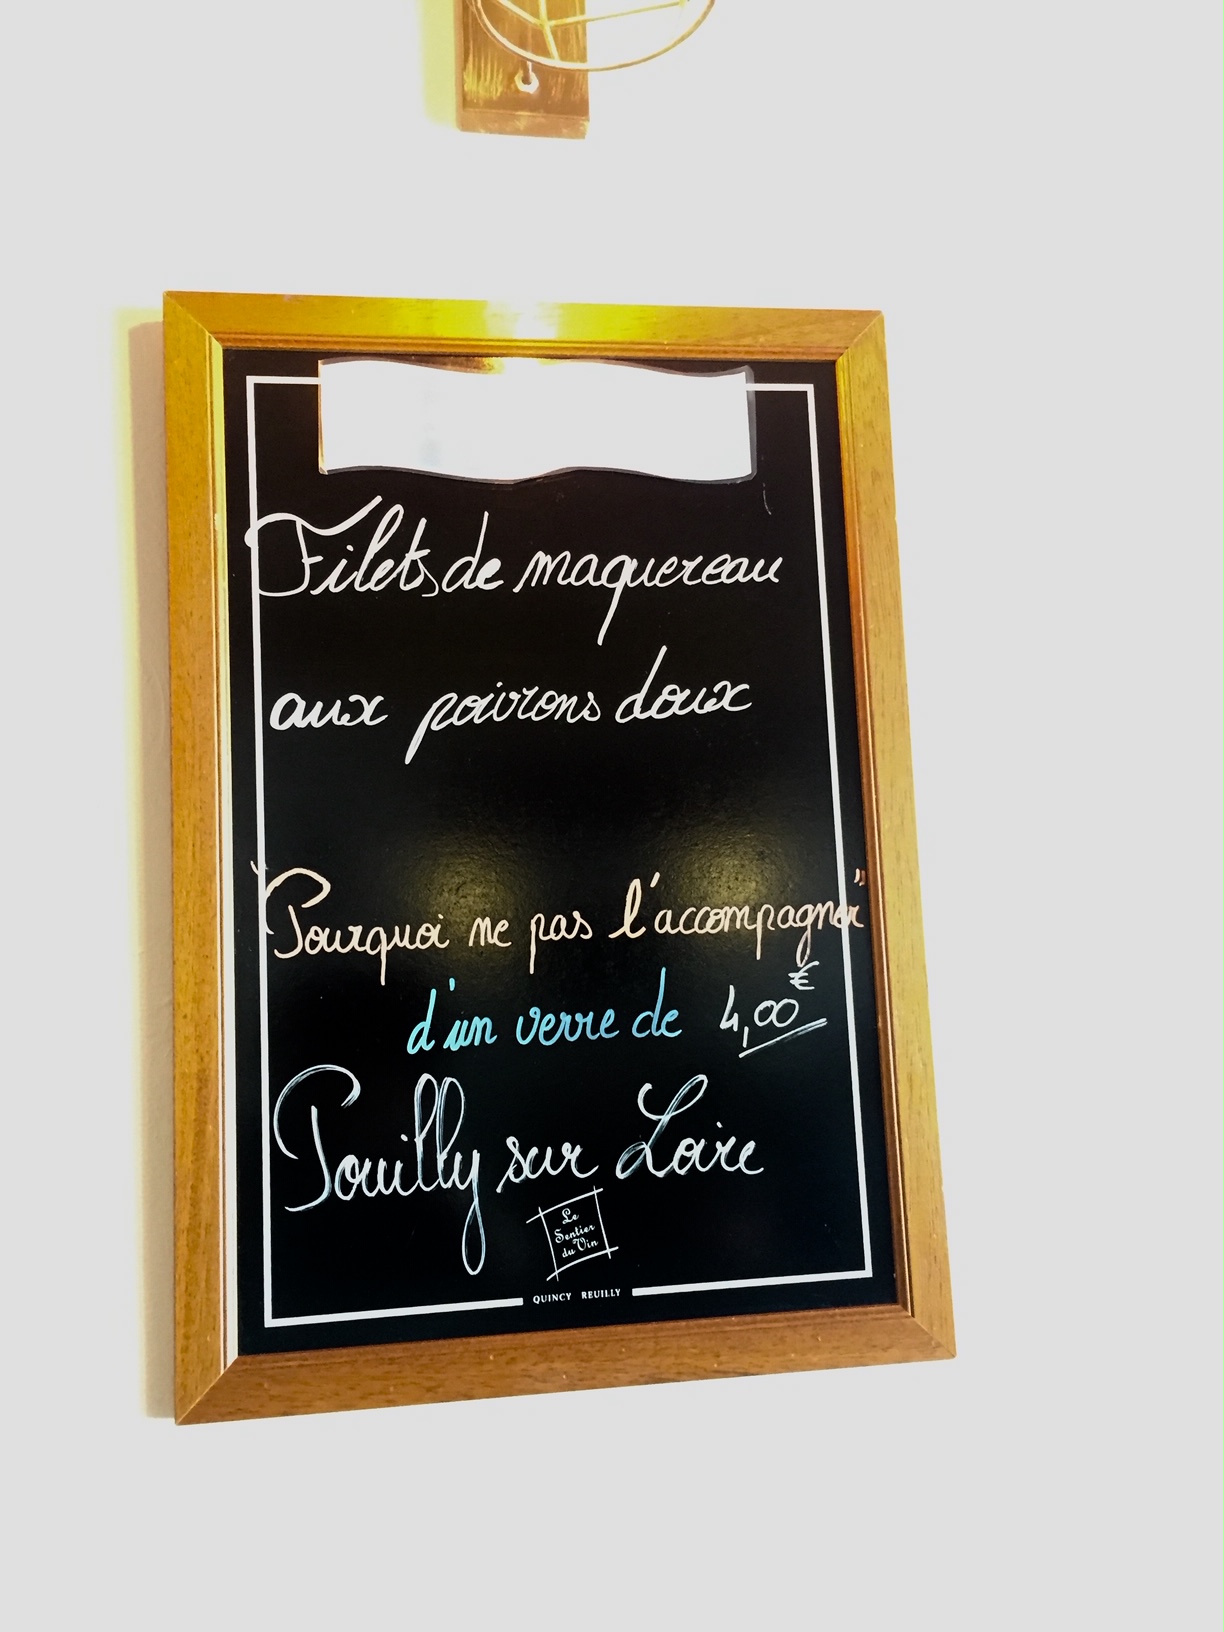 Filets de maquereau
aux poivrons doux
"Pourquoi ne pas l'accompagner"
d'un verre de 4,00€
Pouilly sur Loire
Le
Sentier
du Vin
QUINCY REUILLY